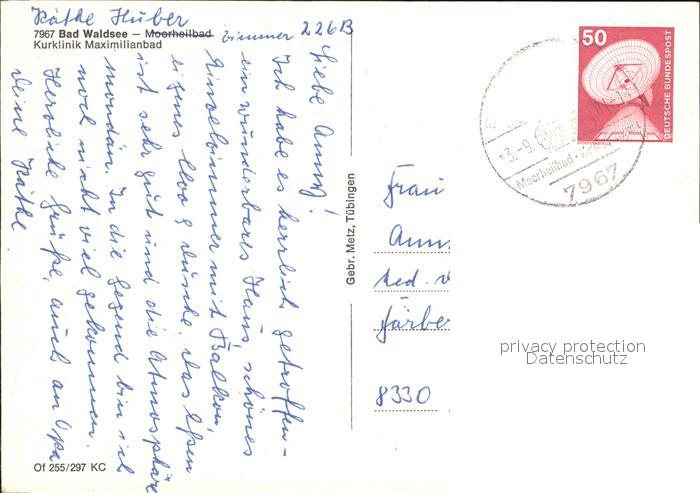 Käthe Huber
7967 Bad Waldsee – Moorheilbad Zimmer 226B
Kurklinik Maximilianbad
Liebe Anny!
Ich habe es herrlich getroffen –
ein wunderbares Haus, schönes
Einzelzimmer mit Balkon,
eigenes Kloo & Dusche. Das Essen
ist sehr gut und die Atmosphäre
mondän. In die Gegend bin ich
noch nicht viel gekommen.
Herzliche Grüße, auch an Opa
Deine Käthe
Of 255/297 KC
Gebr. Metz, Tübingen
50
DEUTSCHE BUNDESPOST
-3.-9.
Moorheilbad
7967
Frau
Ann
Färbe
8330
privacy protection
Datenschutz